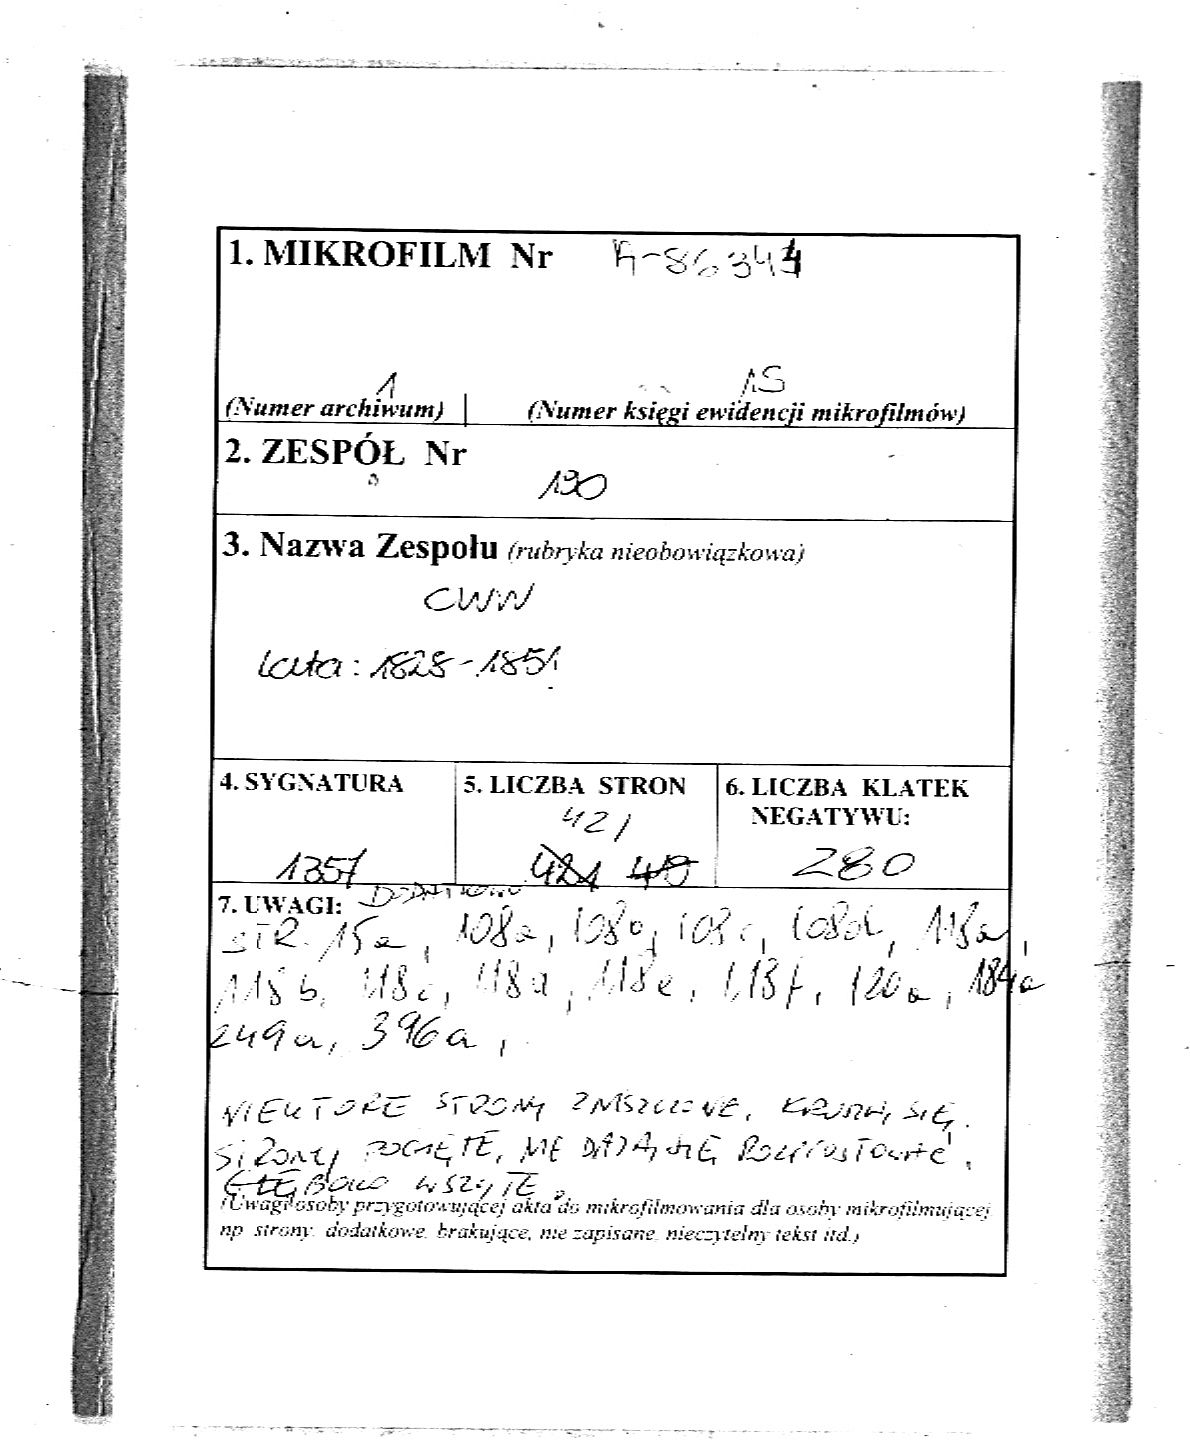 1. MIKROFILM Nr A-86344
1 15
(Numer archiwum) | (Numer księgi ewidencji mikrofilmów)
2. ZESPÓŁ Nr
190
3. Nazwa Zespołu (rubryka nieobowiązkowa)
CWW
lata: 1828-1851
4. SYGNATURA 5. LICZBA STRON 6. LICZBA KLATEK
NEGATYWU:
421
1357 421 419 280
7. UWAGI: DODATKOWO
STR. 15a, 108a, 108b, 108c, 108d, 118a,
118b, 118c, 118d, 118e, 118f, 120a, 184a
249a, 396a,
NIEKTÓRE STRONY ZNISZCZONE, KRUSZĄ SIĘ.
STRONY POGIĘTE, NIE DADZĄ SIĘ ROZPROSTOWAĆ,
GŁĘBOKO WSZYTE.
(Uwagi osoby przygotowującej akta do mikrofilmowania dla osoby mikrofilmującej
np. strony: dodatkowe, brakujące, nie zapisane, nieczytelny tekst itd.)